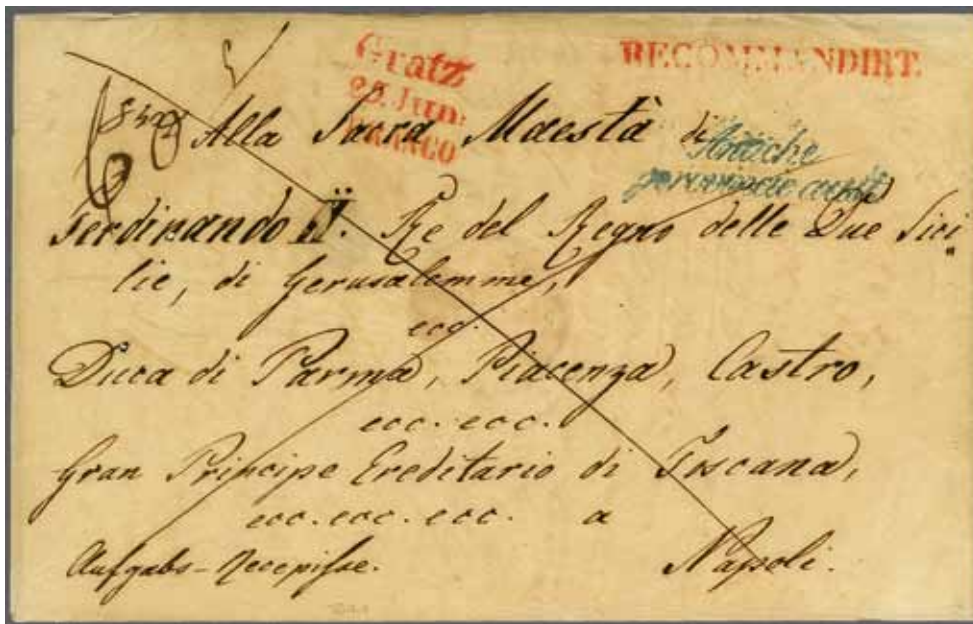 Gratz
22. Jun:
FRANCO
RECOMMANDIRT.
Alla Sacra Maestà di
Antiche
provincie austr
Ferdinando II. Re del Regno delle Due Sici
lie, di Gerusalemme,
ecc.
Duca di Parma, Piacenza, Castro,
ecc. ecc.
Gran Principe Ereditario di Toscana,
ecc. ecc. ecc. a
Aufgabs-Recepisse. Napoli.